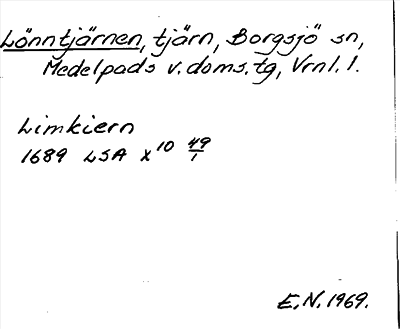 Lönntjärnen, tjärn, Borgsjö sn,
Medelpads v. doms. tg, Vrnl. l.
Limkiern
1689 LSA X¹⁰ 49/1
E.N. 1969.